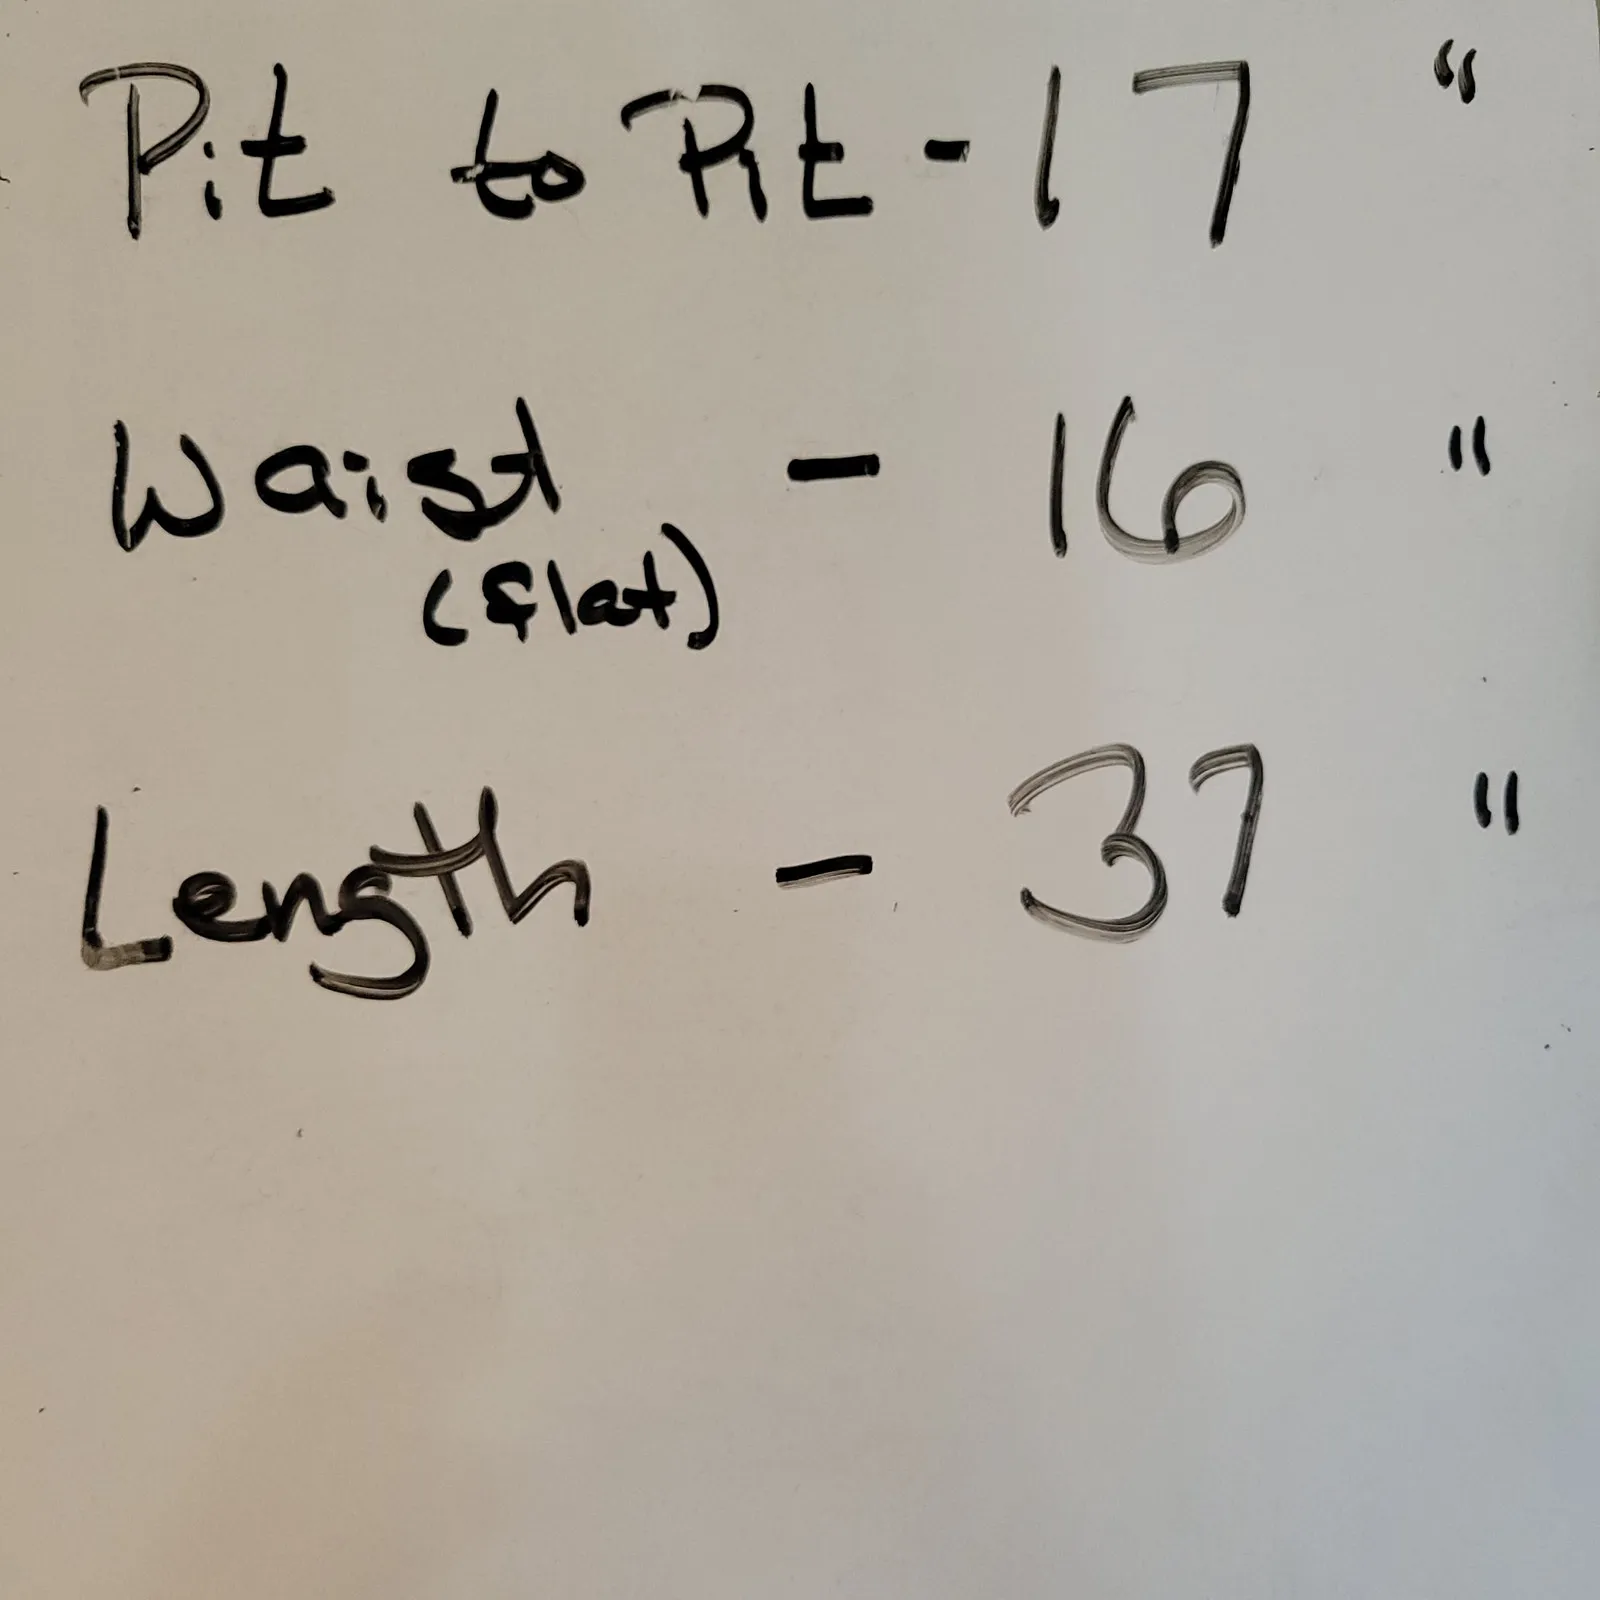 Pit to Pit - 17 "
Waist - 16 "
(flat)
Length - 37 "